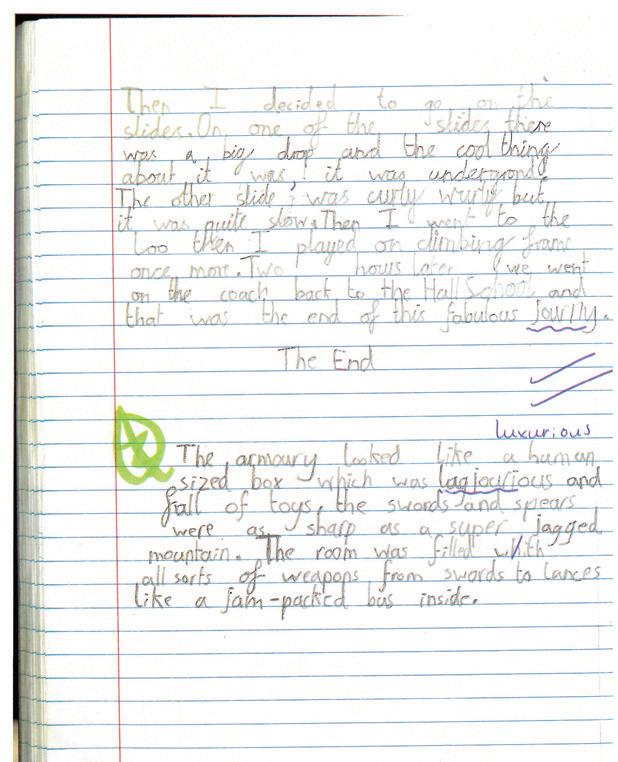 Then I decided to go on the
slides. On one of the slides there
was a big drop and the cool thing
about it was, it was undergrond
The other slide, was curly wurly but
it was quite slow. Then I went to the
Loo then I played on climbing frame
once more. Two hours later we went
on the coach back to the Hall School and
that was the end of this fabulous jourlly.
The End
luxurious
The armoury looked like a human
sized box which was lagjourious and
full of toys, the swords and spears
were as sharp as a super jagged
mountain. The room was filled whith
all sorts of weapons from swords to lances
like a jam-packed bus inside.